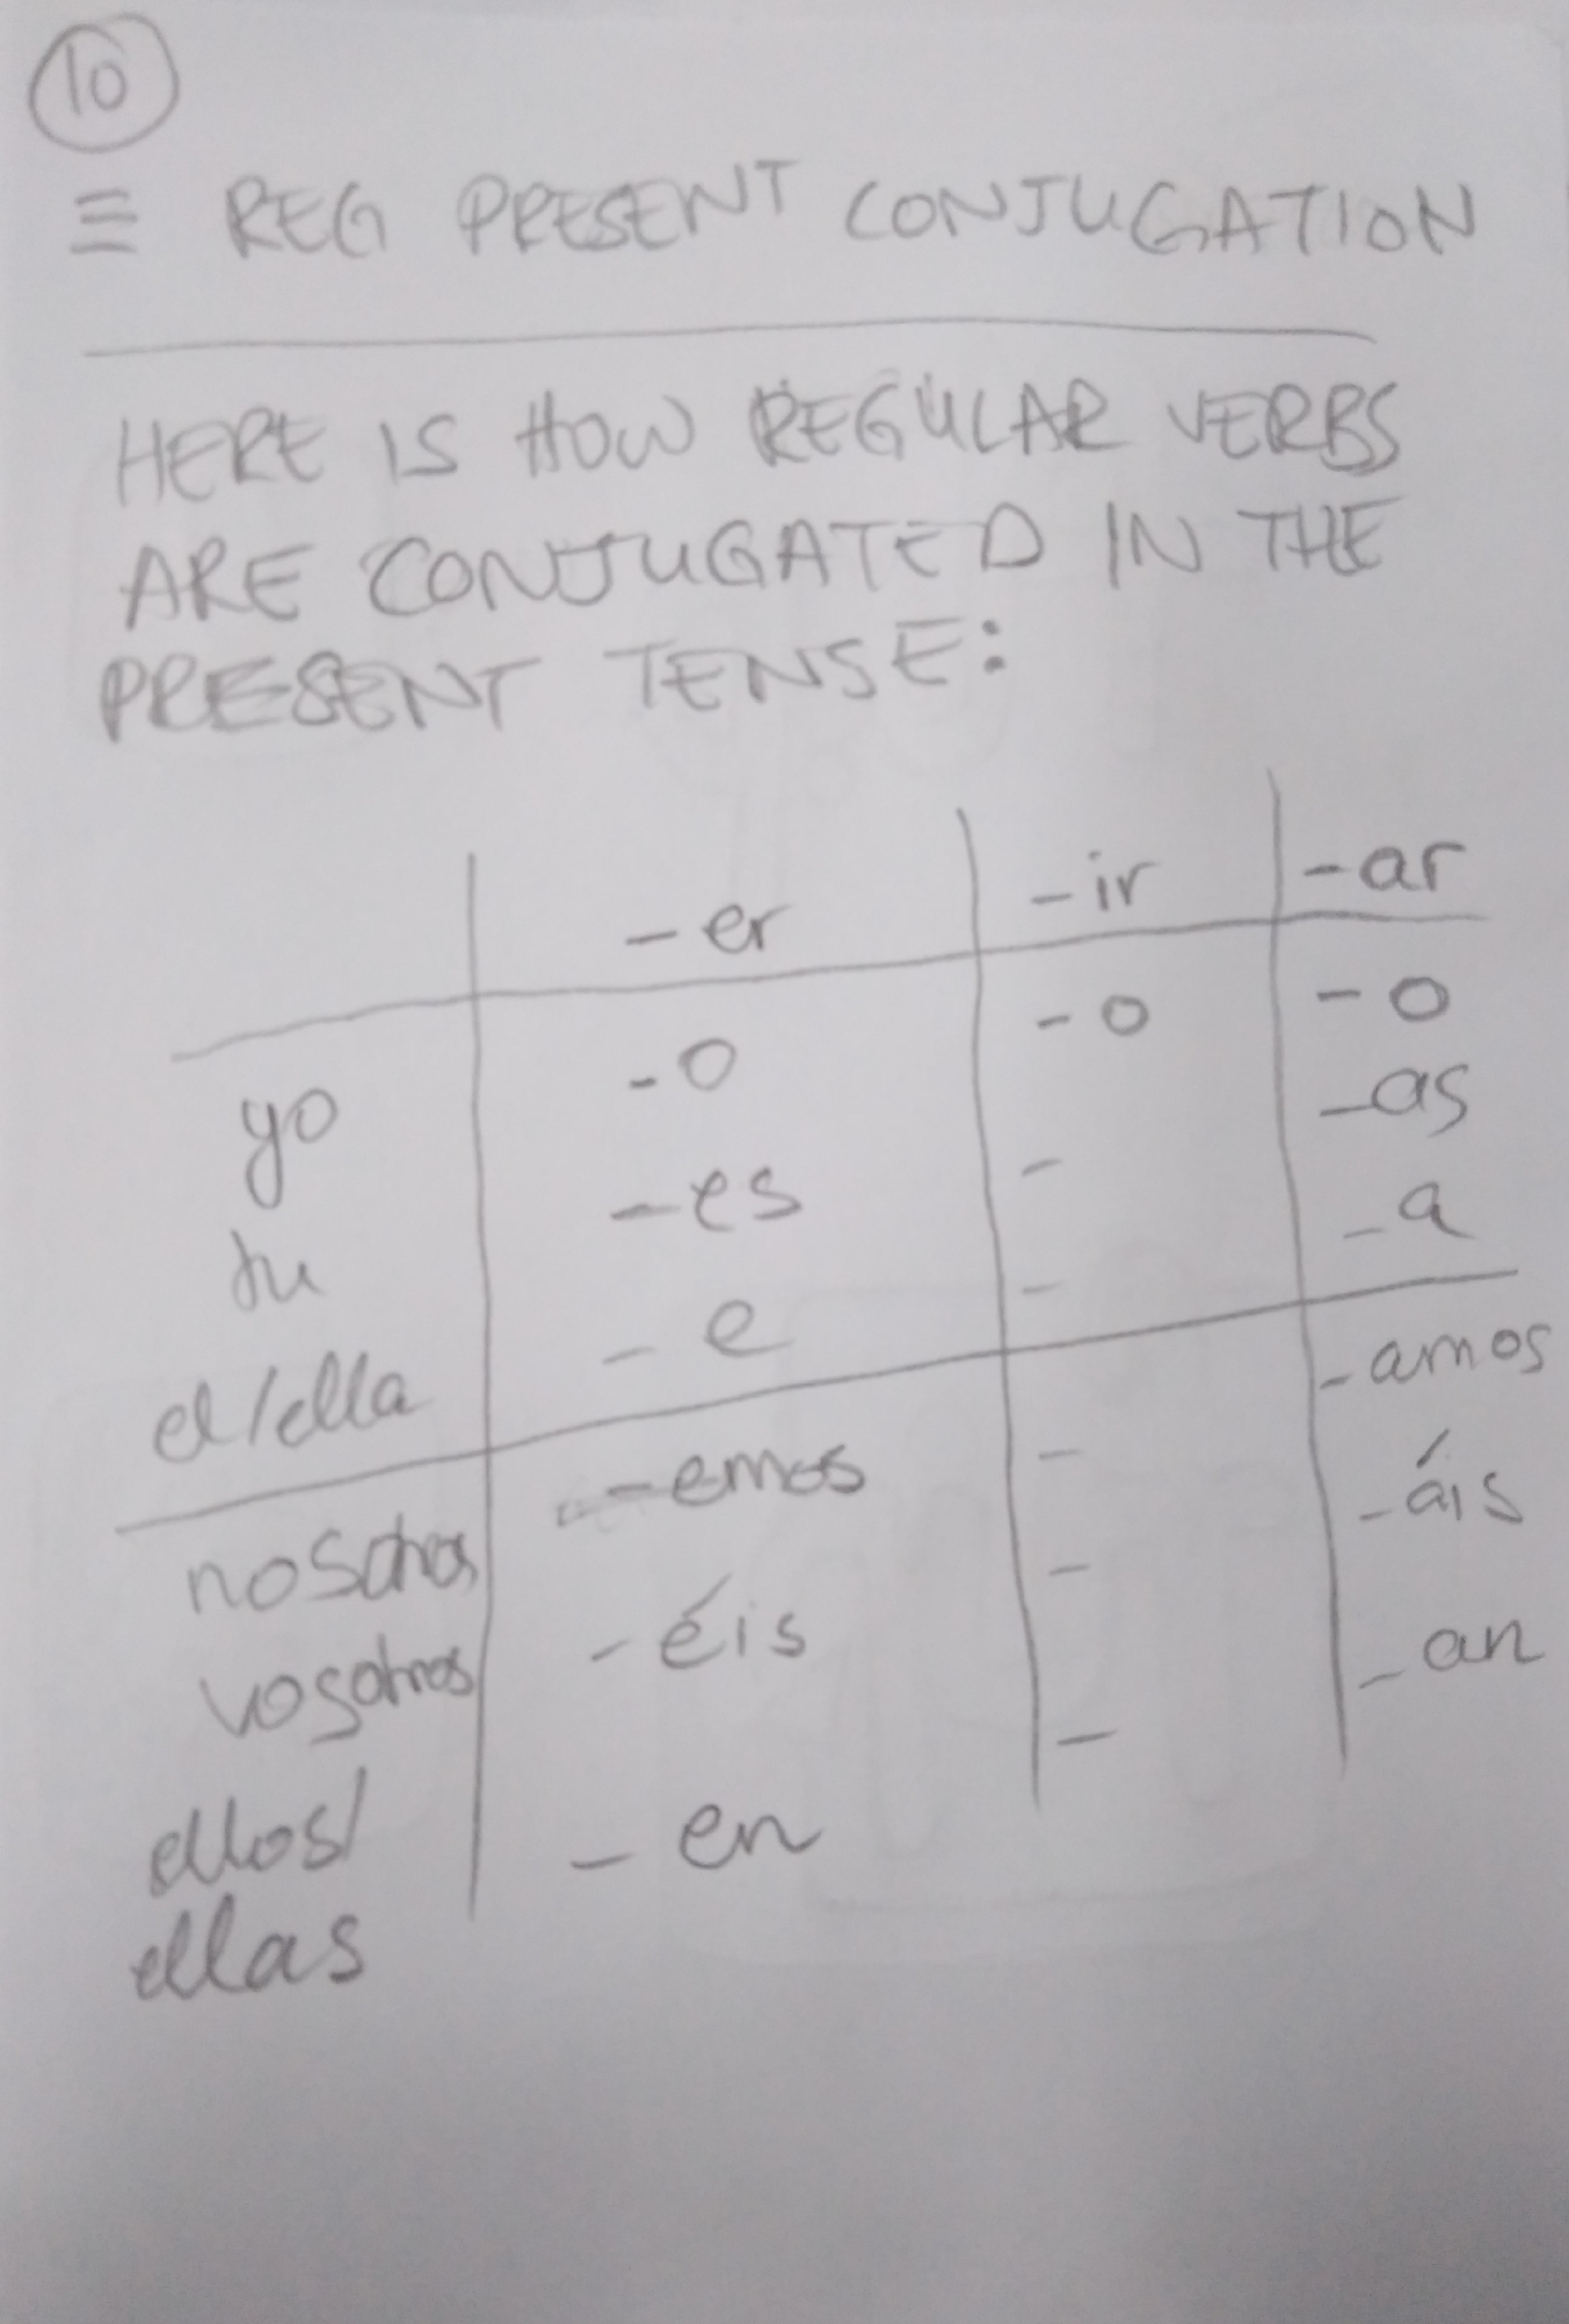 10
≡ REG PRESENT CONJUGATION
HERE IS HOW REGULAR VERBS
ARE CONJUGATED IN THE
PRESENT TENSE:
-er -ir -ar
yo -o -o -o
tu -es - -as
el/ella -e - -a
nosotros -emos - -amos
vosotros -éis - -áis
ellos/ -en - -an
ellas